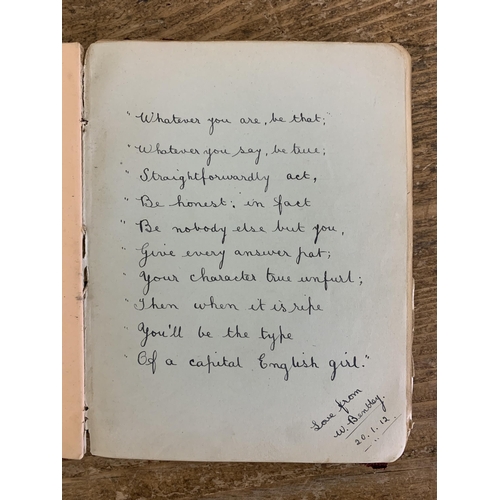 "Whatever you are, be that;
"Whatever you say, be true;
"Straightforwardly act,
"Be honest: in fact
"Be nobody else but you,
"Give every answer pat;
"Your character true unfurl;
"Then when it is ripe
"You'll be the type
"Of a capital English girl."
Love from
W. Bentley.
20.1.12